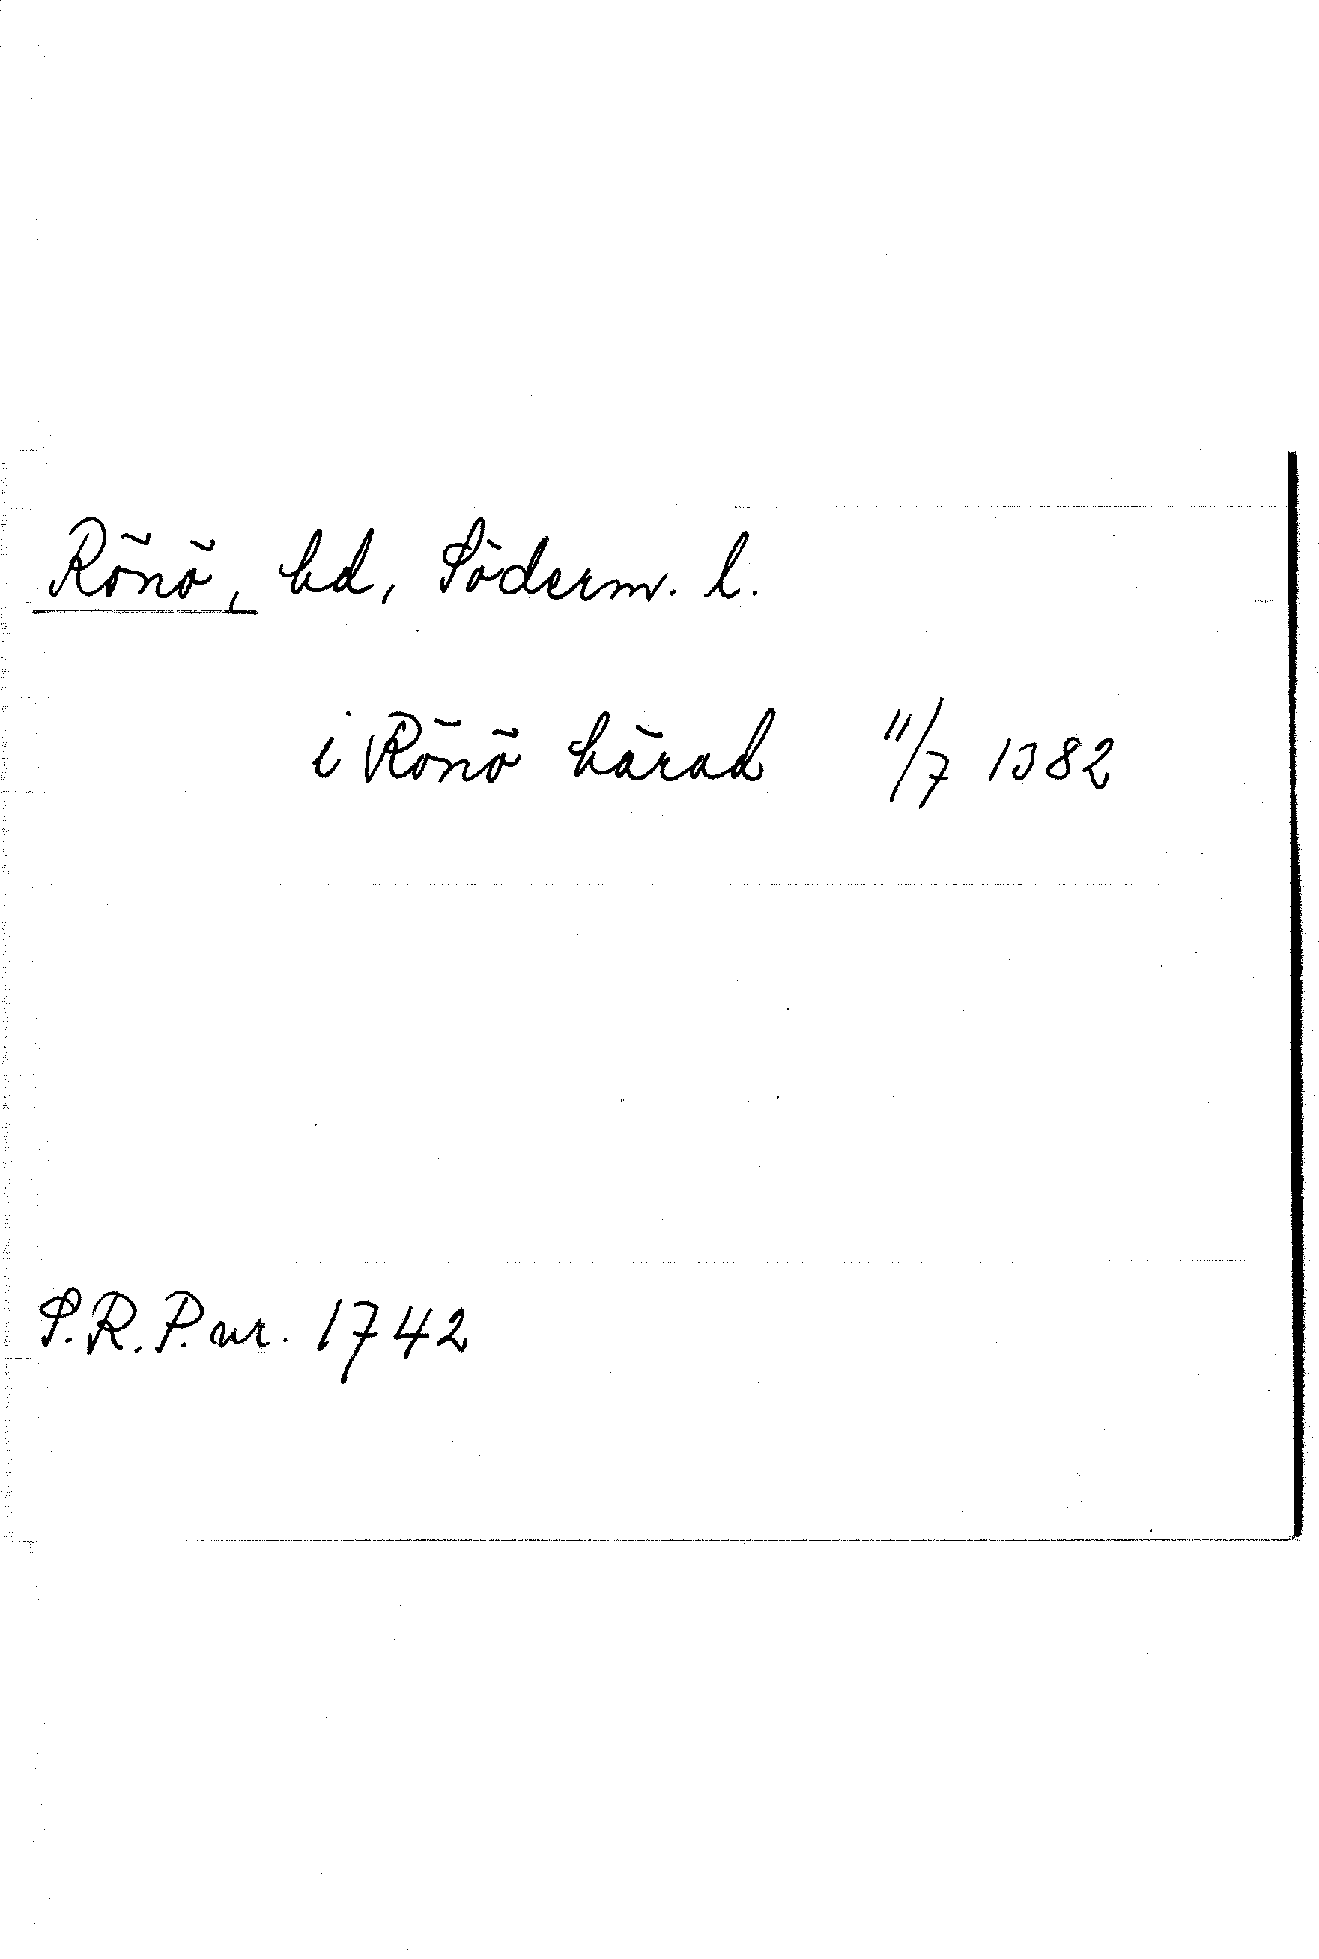 Rönö, hd, Söderm. l.
i Rönö härad 11/7 1382
S.R.P. nr. 1742